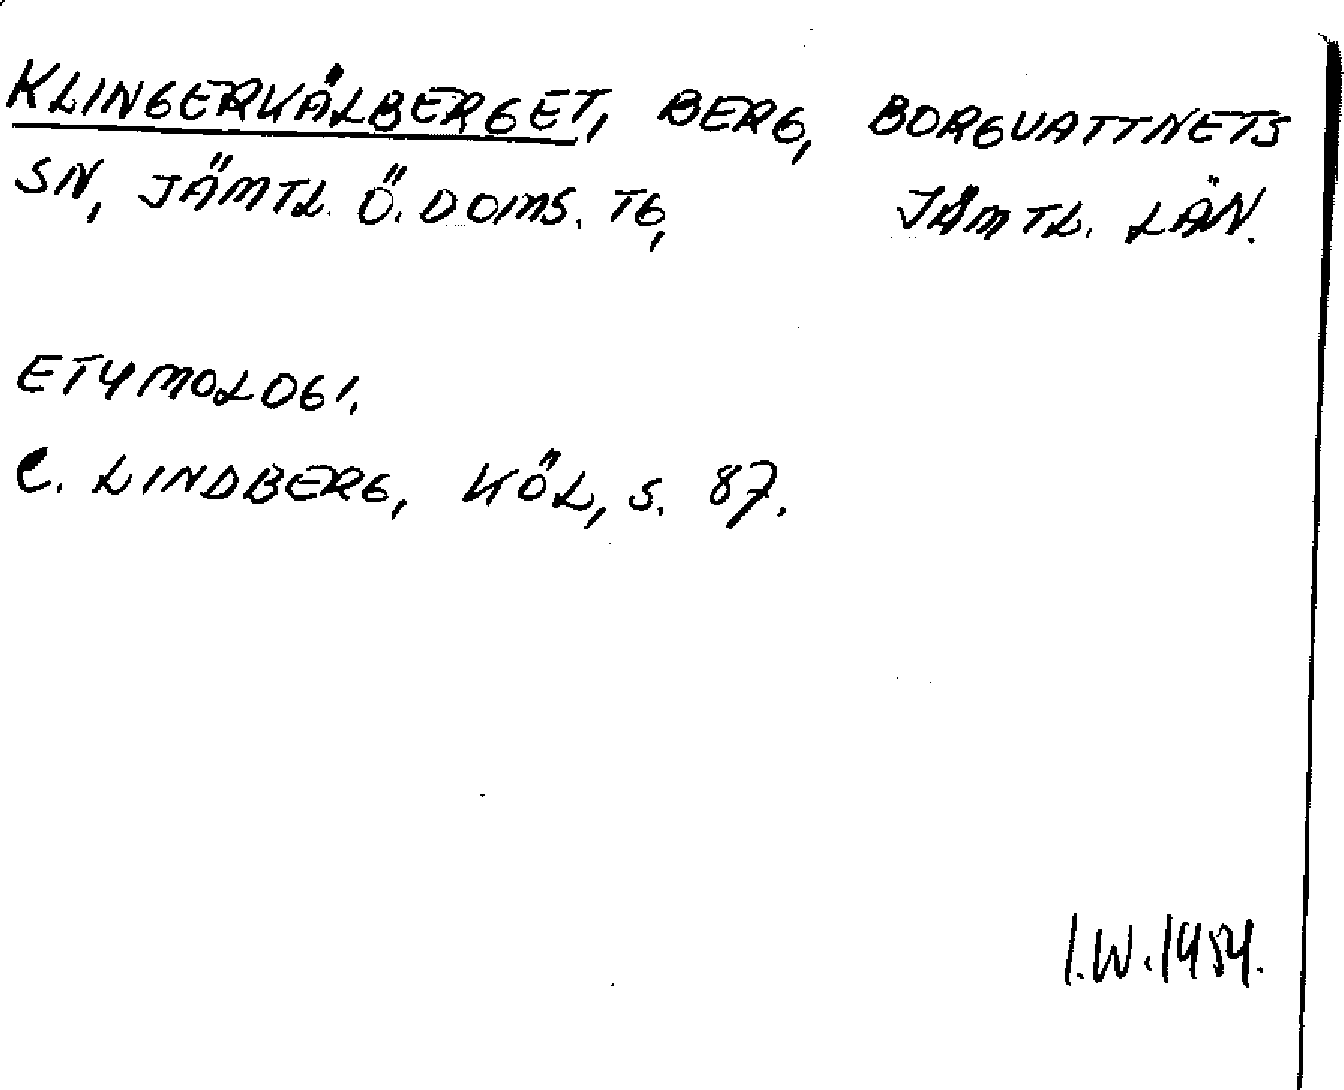 KLINGERKÄLBERGET, BERG, BORGVATTNETS
SN, JÄMTL. Ö. DOMS. TG, JÄMTL. LÄN.
ETYMOLOGI.
C. LINDBERG, KÖL, S. 87.
I.W. 1954.